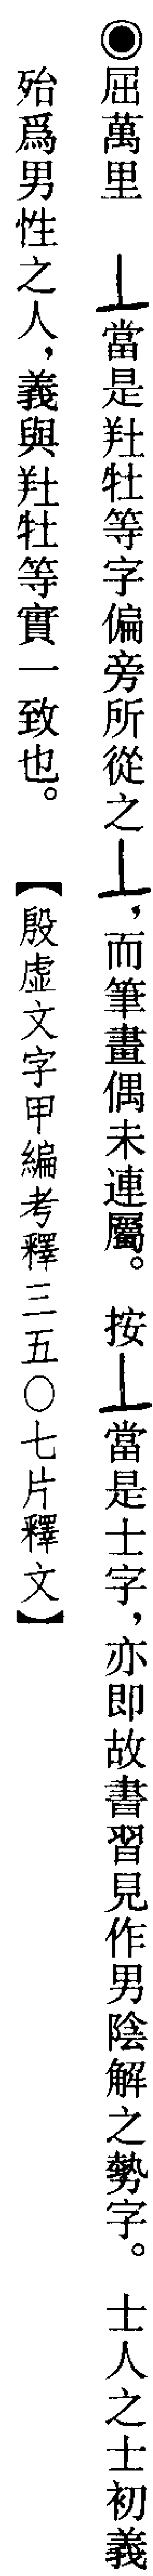 ◉屈萬里　丄當是𦍔牡等字偏旁所從之丄，而筆畫偶未連屬。　按丄當是士字，亦即故書習見作男陰解之勢字。　士人之士初義
殆爲男性之人，義與𦍔牡等實一致也。　【殷虛文字甲編考釋三五〇七片釋文】